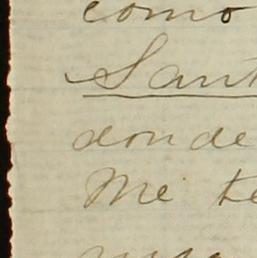 como
Sant
donde
Me te